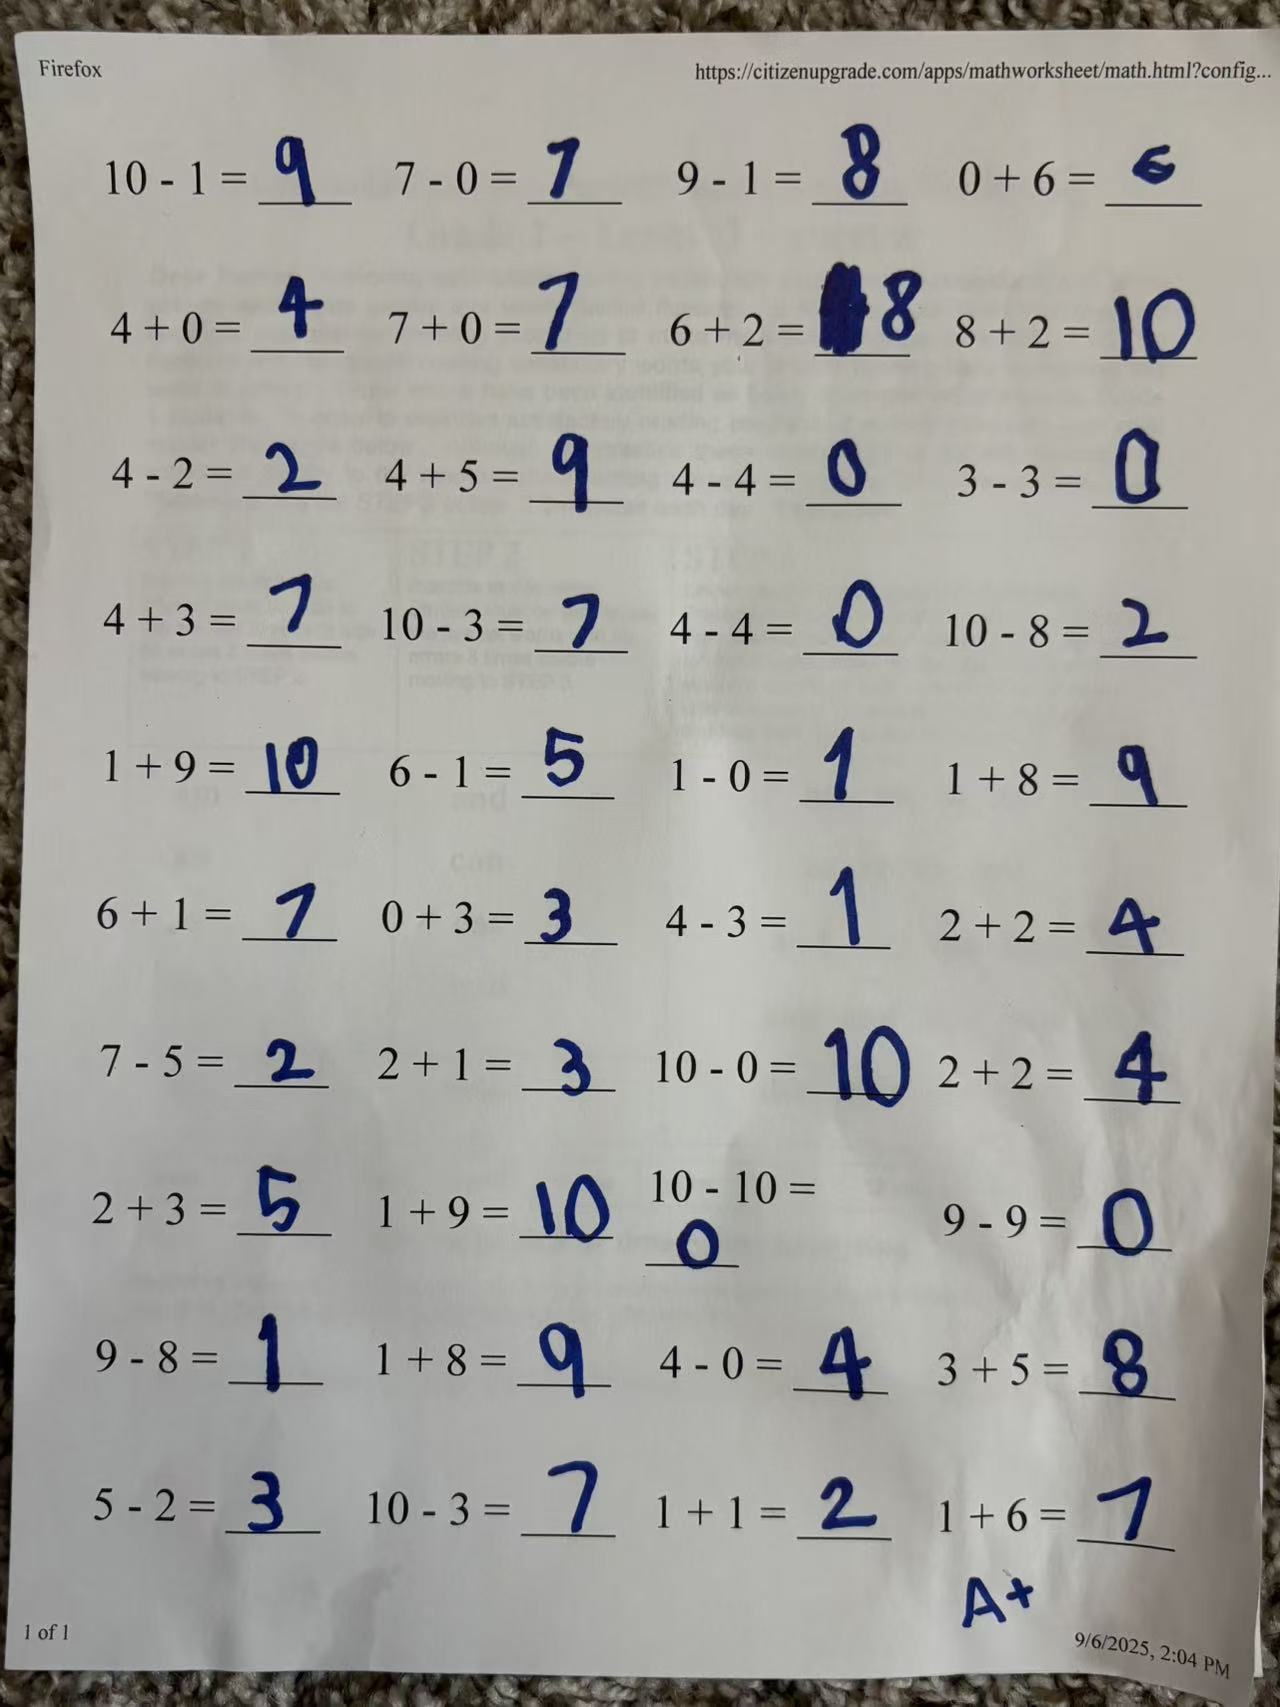 Firefox https://citizenupgrade.com/apps/mathworksheet/math.html?config...
10 - 1 = 9 7 - 0 = 7 9 - 1 = 8 0 + 6 = 6
4 + 0 = 4 7 + 0 = 7 6 + 2 = 8 8 + 2 = 10
4 - 2 = 2 4 + 5 = 9 4 - 4 = 0 3 - 3 = 0
4 + 3 = 7 10 - 3 = 7 4 - 4 = 0 10 - 8 = 2
1 + 9 = 10 6 - 1 = 5 1 - 0 = 1 1 + 8 = 9
6 + 1 = 7 0 + 3 = 3 4 - 3 = 1 2 + 2 = 4
7 - 5 = 2 2 + 1 = 3 10 - 0 = 10 2 + 2 = 4
2 + 3 = 5 1 + 9 = 10 10 - 10 = 0 9 - 9 = 0
9 - 8 = 1 1 + 8 = 9 4 - 0 = 4 3 + 5 = 8
5 - 2 = 3 10 - 3 = 7 1 + 1 = 2 1 + 6 = 7
A+
1 of 1 9/6/2025, 2:04 PM